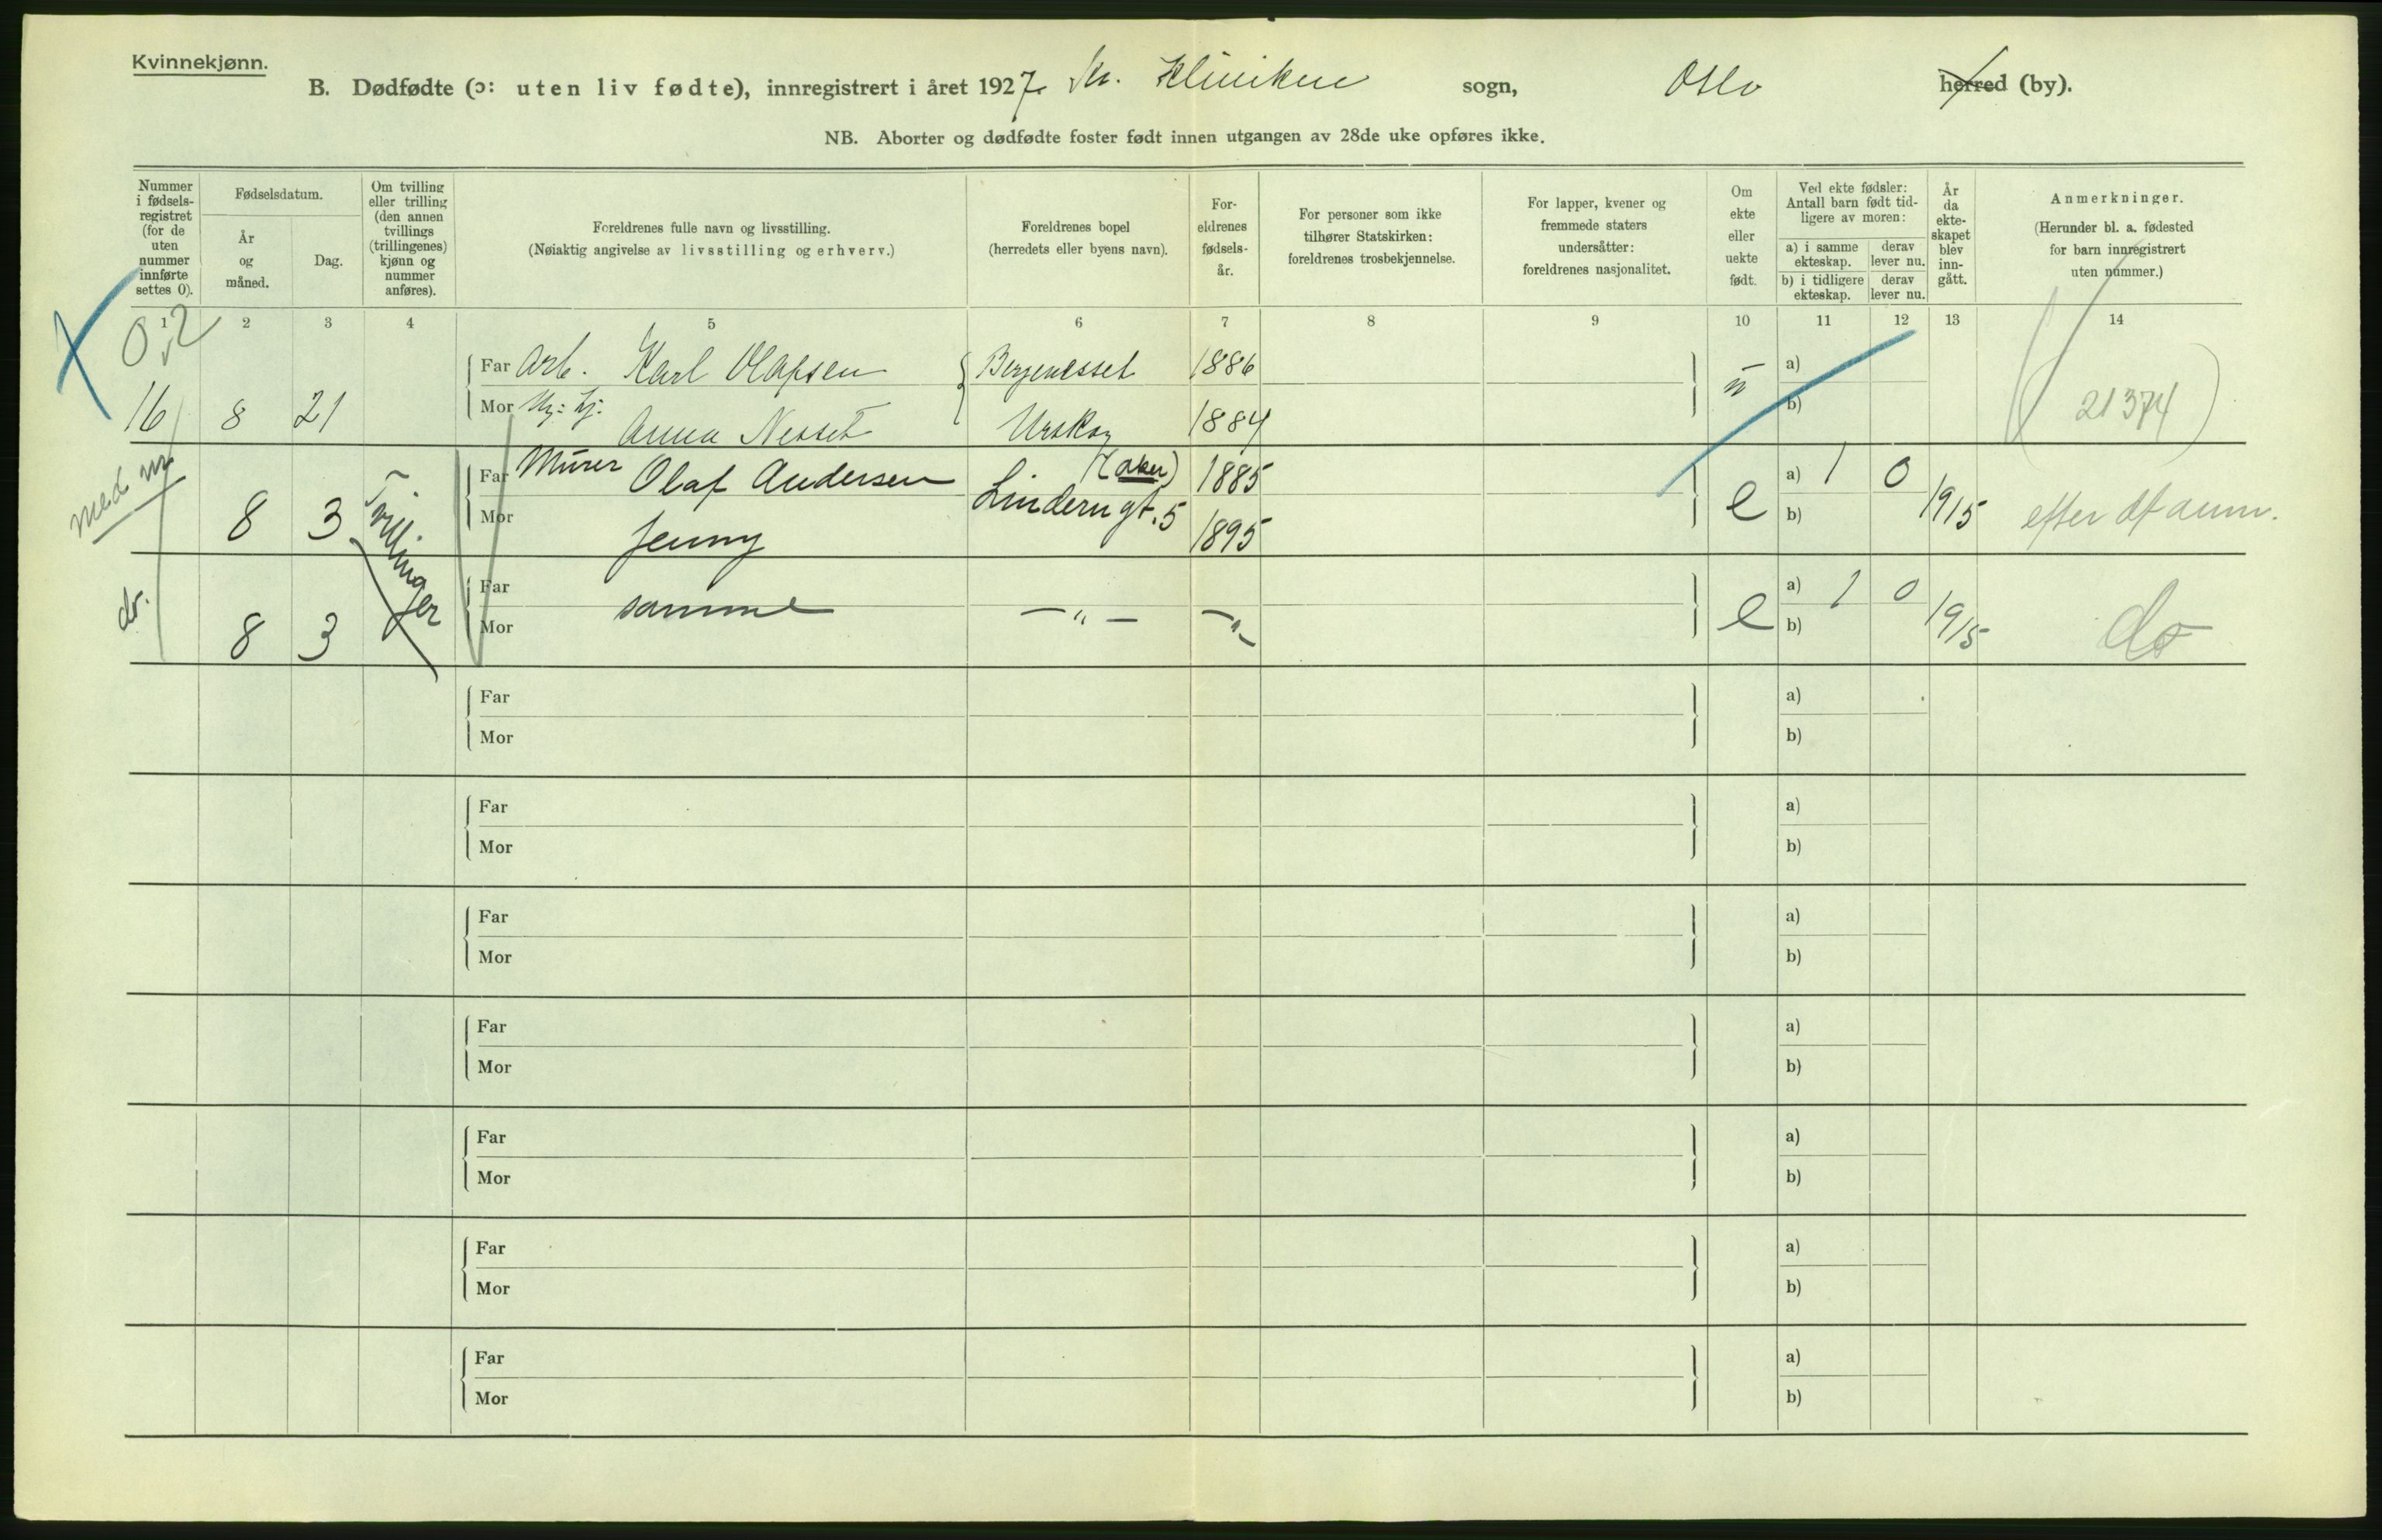 Kvinnekjønn.
B. Dødfødte (ɔ: uten liv fødte), innregistrert i året 1927. Kv. Klinikken sogn, Oslo herred (by).
NB. Aborter og dødfødte foster født innen utgangen av 28de uke opføres ikke.
Nummer i fødsels-registret (for de uten nummer innførte settes 0).
Fødselsdatum.
År og måned.
Dag.
Om tvilling eller trilling (den annen tvillings (trillingenes) kjønn og nummer anføres).
Foreldrenes fulle navn og livsstilling.
(Nøiaktig angivelse av livsstilling og erhverv.)
Foreldrenes bopel
(herredets eller byens navn).
For-eldrenes fødsels-år.
For personer som ikke tilhører Statskirken: foreldrenes trosbekjennelse.
For lapper, kvener og fremmede staters undersåtter: foreldrenes nasjonalitet.
Om ekte eller uekte født.
Ved ekte fødsler: Antall barn født tid-ligere av moren:
a) i samme ekteskap. derav lever nu.
b) i tidligere ekteskap. derav lever nu.
År da ekte-skapet blev inn-gått.
Anmerkninger.
(Herunder bl. a. fødested for barn innregistrert uten nummer.)
1 2 3 4 5 6 7 8 9 10 11 12 13 14
0,2
Far Arb. Karl Olafsen Bergenesset 1886 ü a)
16 8 21 Mor Anna Nesset Urskog 1884 b) 21374
med nr
Far Murer Olaf Andersen (Aker) 1885 e a) 1 0 1915 efter
8 3 Tvillinger Mor Jenny Linderngt. 5 1895 b)
do. Far samme —„— —„— e a) 1 0 1915 do
8 3 Mor b)
Far a)
Mor b)
Far a)
Mor b)
Far a)
Mor b)
Far a)
Mor b)
Far a)
Mor b)
Far a)
Mor b)
Far a)
Mor b)